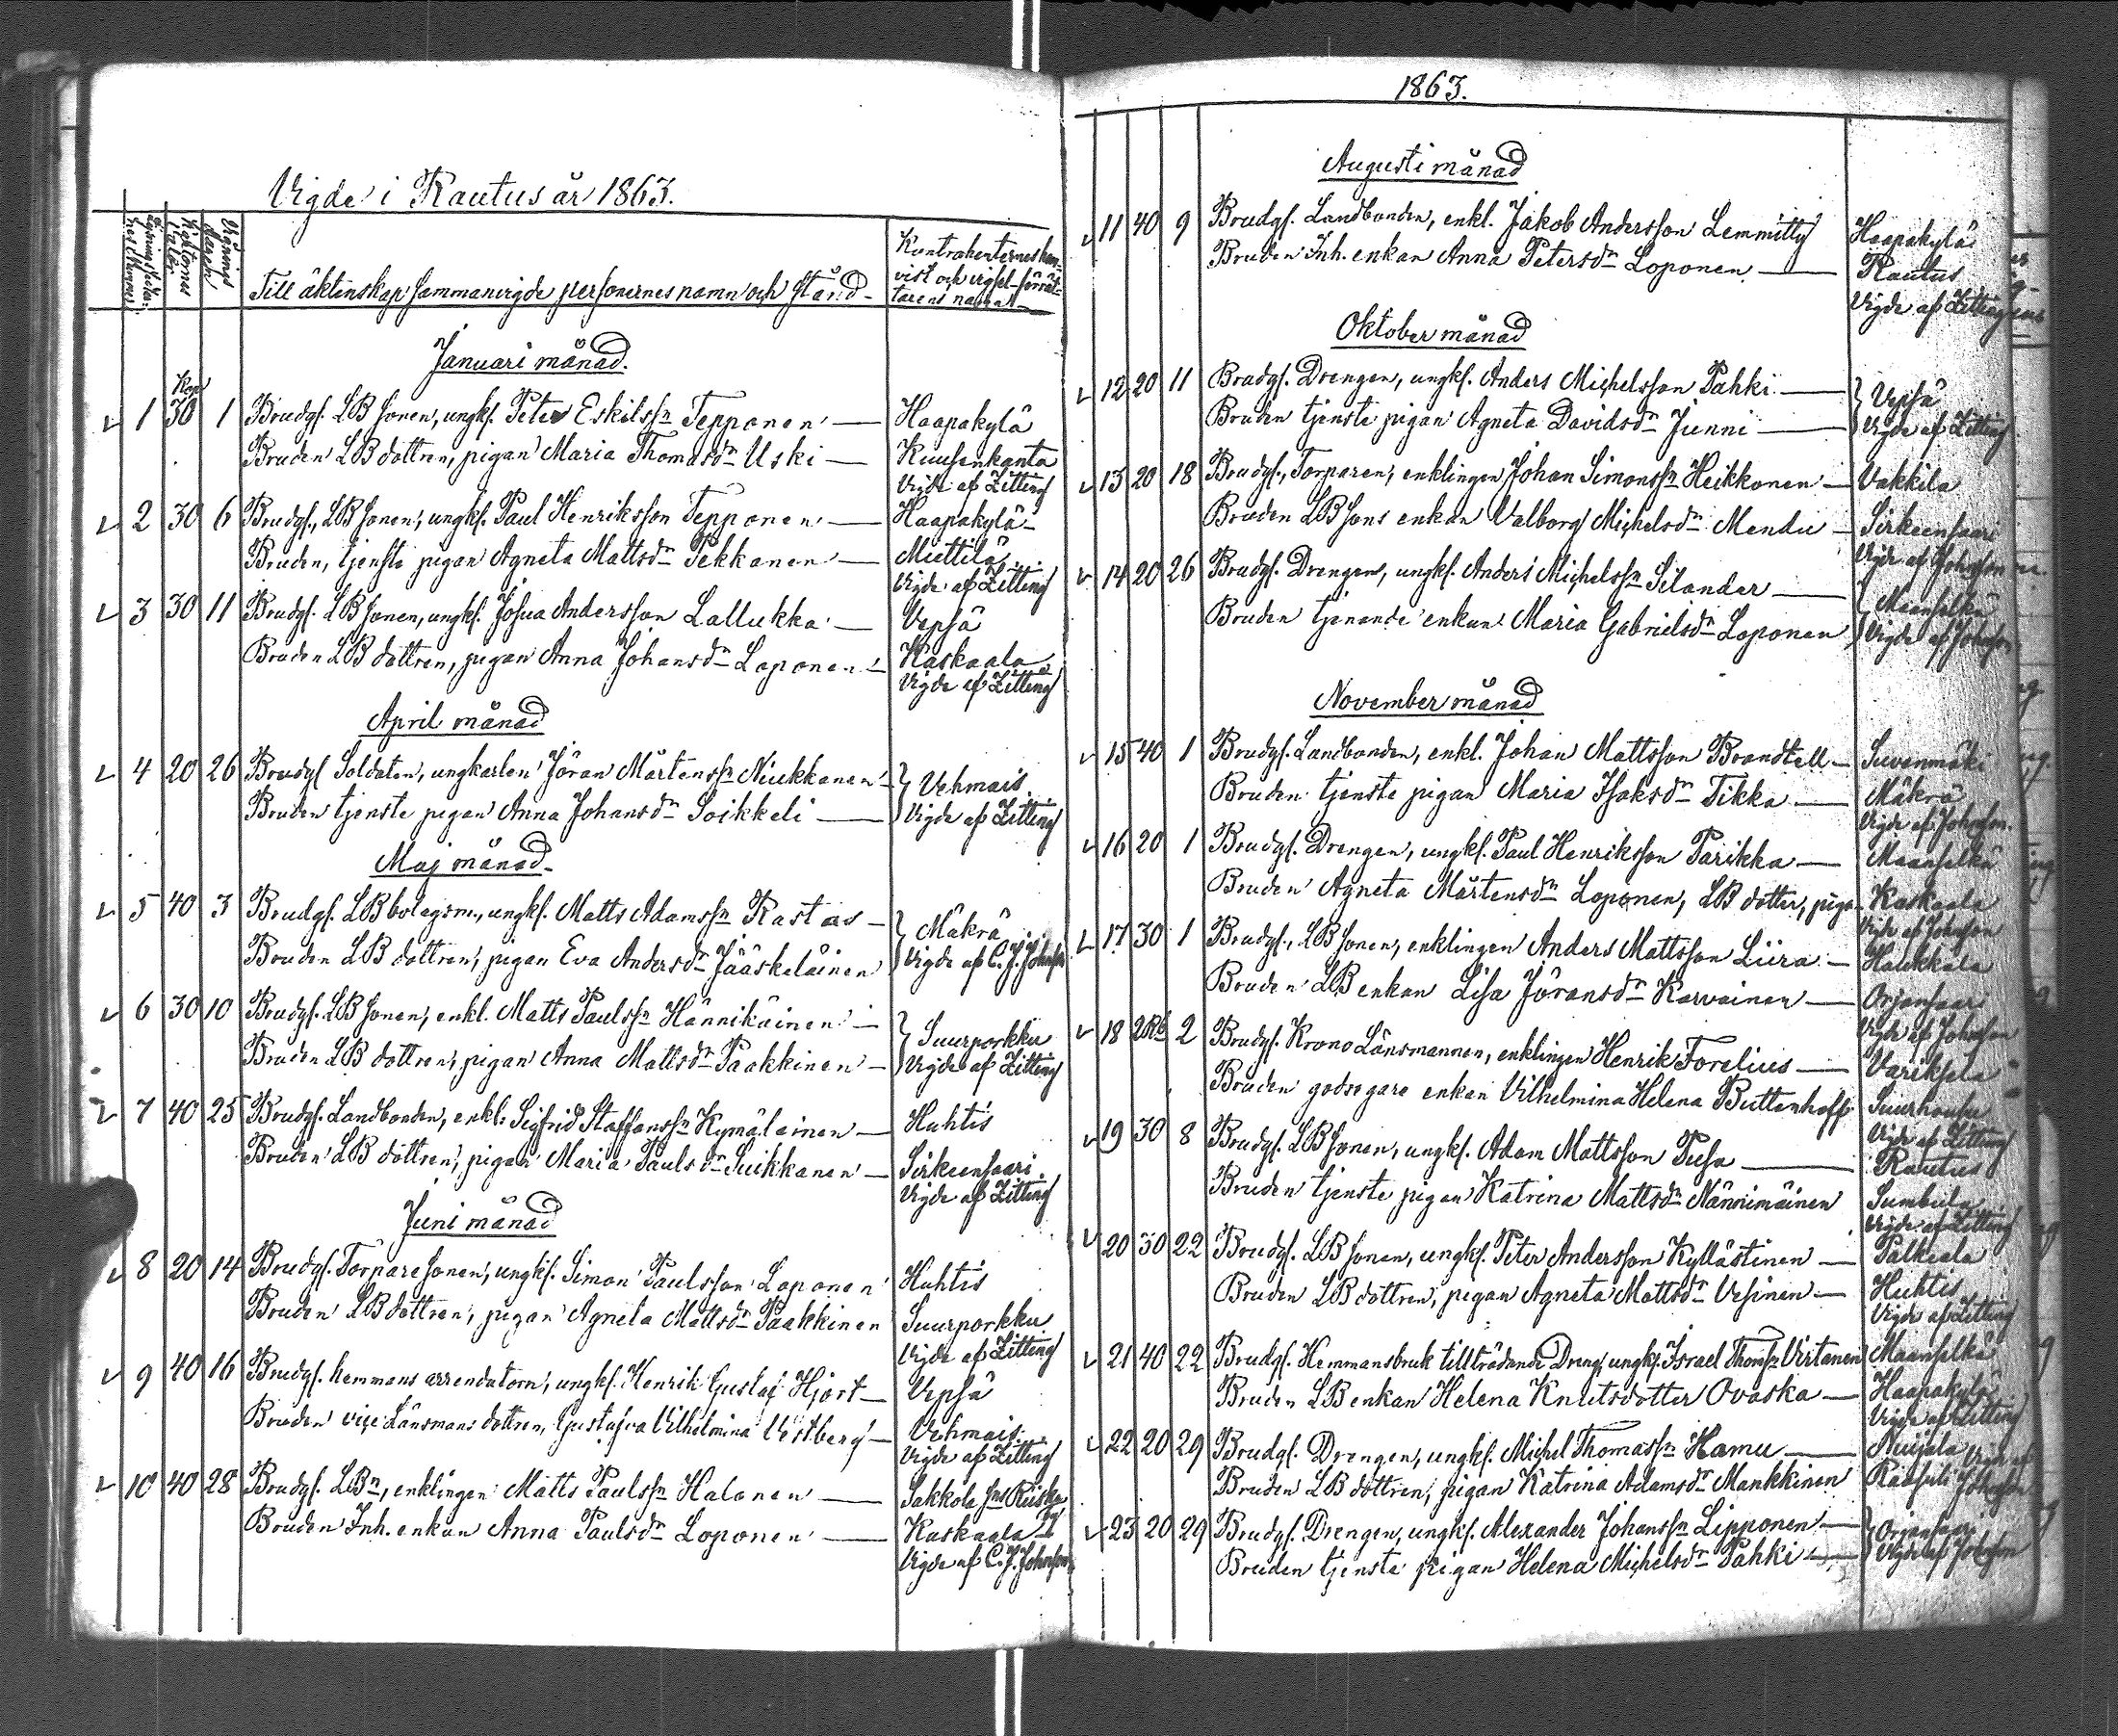 Vigde i Rautus år 1863.
Vignings dagen
Till äktenskap sammanvigde personernes namn och stånd
Kontrahenternes hem-
vist och vigsel-förrät-
tarens namn
Januari månad.
Kop
1 30 1 Brudg. LBsonen, ungk. Peter Eskilssn Tepponen — Haapakylä
Bruden LBdottren, pigan Maria Thomasdr Uski — Kuusenkanta
Vigde af Zitting
2 30 6 Brudg., LBsonen, ungk. Paul Henriksson Tepponen — Haapakylä
Bruden, tjenste pigan Agneta Mattsdr Pekkanen — Miettilä
Vigde af Zitting
3 30 11 Brudg. LBsonen, ungk. Josua Andersson Lallukka — Vepsä
Bruden LBdottren, pigan Anna Johansdr Loponen — Kaskaala
Vigde af Zitting
April månad
4 20 26 Brudg. Soldaten, ungkarlen Jöran Mårtenssn Niukkanen } Vehmais
Bruden tjenste pigan Anna Johansdr Soikkeli — } Vigde af Zitting
Maj månad
5 40 3 Brudg. LBbolagsm., ungk. Matts Adamssn Rastas — } Mäkrä
Bruden LBdottren, pigan Eva Andersdr Jääskeläinen } Vigde af C. J. Johnsson
6 30 10 Brudg. LBsonen, enkl. Matts Paulssn Hännikäinen — } Suurporkku
Bruden LBdottren, pigan Anna Mattsdr Paakkinen — } Vigde af Zitting
7 40 25 Brudg. Landbonden, enkl. Sigfrid Staffanssn Kymäläinen — Huhtis
Bruden LBdottren, pigan Maria Paulsdr Suikkanen — Sirkeensaari
Vigde af Zitting
Juni månad
8 20 14 Brudg. Torparesonen, ungk. Simon Paulsson Loponen Huhtis
Bruden LBdottren, pigan Agneta Mattsdr Paakkinen Suurporkku
Vigde af Zitting
9 40 16 Brudg. hemmans arrendatorn, ungk. Henrik Gustaf Hjort — Vepsä
Bruden vice Länsmans dottren, Gustafva Vilhelmina Vestberg — Vehmais
Vigde af Zitting
10 40 28 Brudg. LBn, enklingen Matts Paulssn Halonen — Sakkola sn Riiska by
Bruden Inh. enkan Anna Paulsdr Loponen — Kaskaala
Vigde af C. J. Johnsson
1863.
Augusti månad
11 40 9 Brudg. Landbonden, enkl. Jakob Andersson Lemmitty Haapakylä
Bruden Inh. enkan Anna Petersdr Loponen — Rautus
Vigde af Zitting
Oktober månad
12 20 11 Brudg. Drengen, ungk. Anders Michelsson Pahki — } Vepsä
Bruden tjenste pigan Agneta Davidsdr Junni — } Vigde af Zitting
13 20 18 Brudg., Torparen, enklingen Johan Simonssn Heikkonen — Vakkila
Bruden LBsons enkan Valborg Michelsdr Mendu — Sirkeensaari
Vigde af Johnsson
14 20 26 Brudg. Drengen, ungk. Anders Michelssn Silander — } Maanselkä
Bruden tjenande enkan Maria Gabrielsdr Loponen } Vigde af Johnsson
November månad
15 40 1 Brudg. Landbonden, enkl. Johan Mattsson Brandtell — Suvenmäki
Bruden tjenste pigan Maria Isaksdr Tikka — Mäkrä
Vigde af Johnsson
16 20 1 Brudg. Drengen, ungk. Paul Henriksson Parikka — Maanselkä
Bruden Agneta Mårtensdr Loponen, LBdotter, pigan Kaskaala
Vigde af Johnsson
17 30 1 Brudg., LBsonen, enklingen Anders Mattsson Liira — Haukkala
Bruden LBenkan Lisa Jöransdr Karvainen — Orjansaari
Vigde af Johnsson
18 2Rb 2 Brudg. Krono Länsmannen, enklingen Henrik Forelius — Variksela
Bruden godsegare enkan Vilhelmina Helena Buttenhoff Suurhousu
Vigde af Zitting
19 30 8 Brudg. LBsonen, ungk. Adam Mattsson Pusa — Rautus
Bruden tjenste pigan Katrina Mattsdr Nännimäinen Sumbula
Vigde af Zitting
20 30 22 Brudg. LBsonen, ungk. Peter Andersson Kyllästinen — Palkeala
Bruden LBdottren, pigan Agneta Mattsdr Vesinen — Huhtis
Vigde af Zitting
21 40 22 Brudg. Hemmansbruk tillträdande Dreng, ungk. Israel Thomssn Virtanen Maanselkä
Bruden LBenkan Helena Knutsdotter Ovaska — Haapakylä
Vigde af Zitting
22 20 29 Brudg. Drengen, ungk. Michel Thomassn Hamu — Nuijala Vigde af
Bruden LBdottren, pigan Katrina Adamsdr Mankkinen Raasuli Johnsson
23 20 29 Brudg. Drengen, ungk. Alexander Johanssn Lipponen — } Orjansaari
Bruden tjenste pigan Helena Michelsdr Pahki — } Vigde af Johnsson